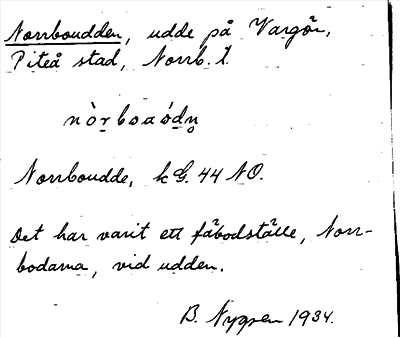 Norrboudden, udde på Vargön,
Piteå stad, Norrb. l.
nòrboaódn
Norrboudde, kG. 44 NO.
Det har varit ett fäbodställe, Norr-
bodarna, vid udden.
B. 1934.